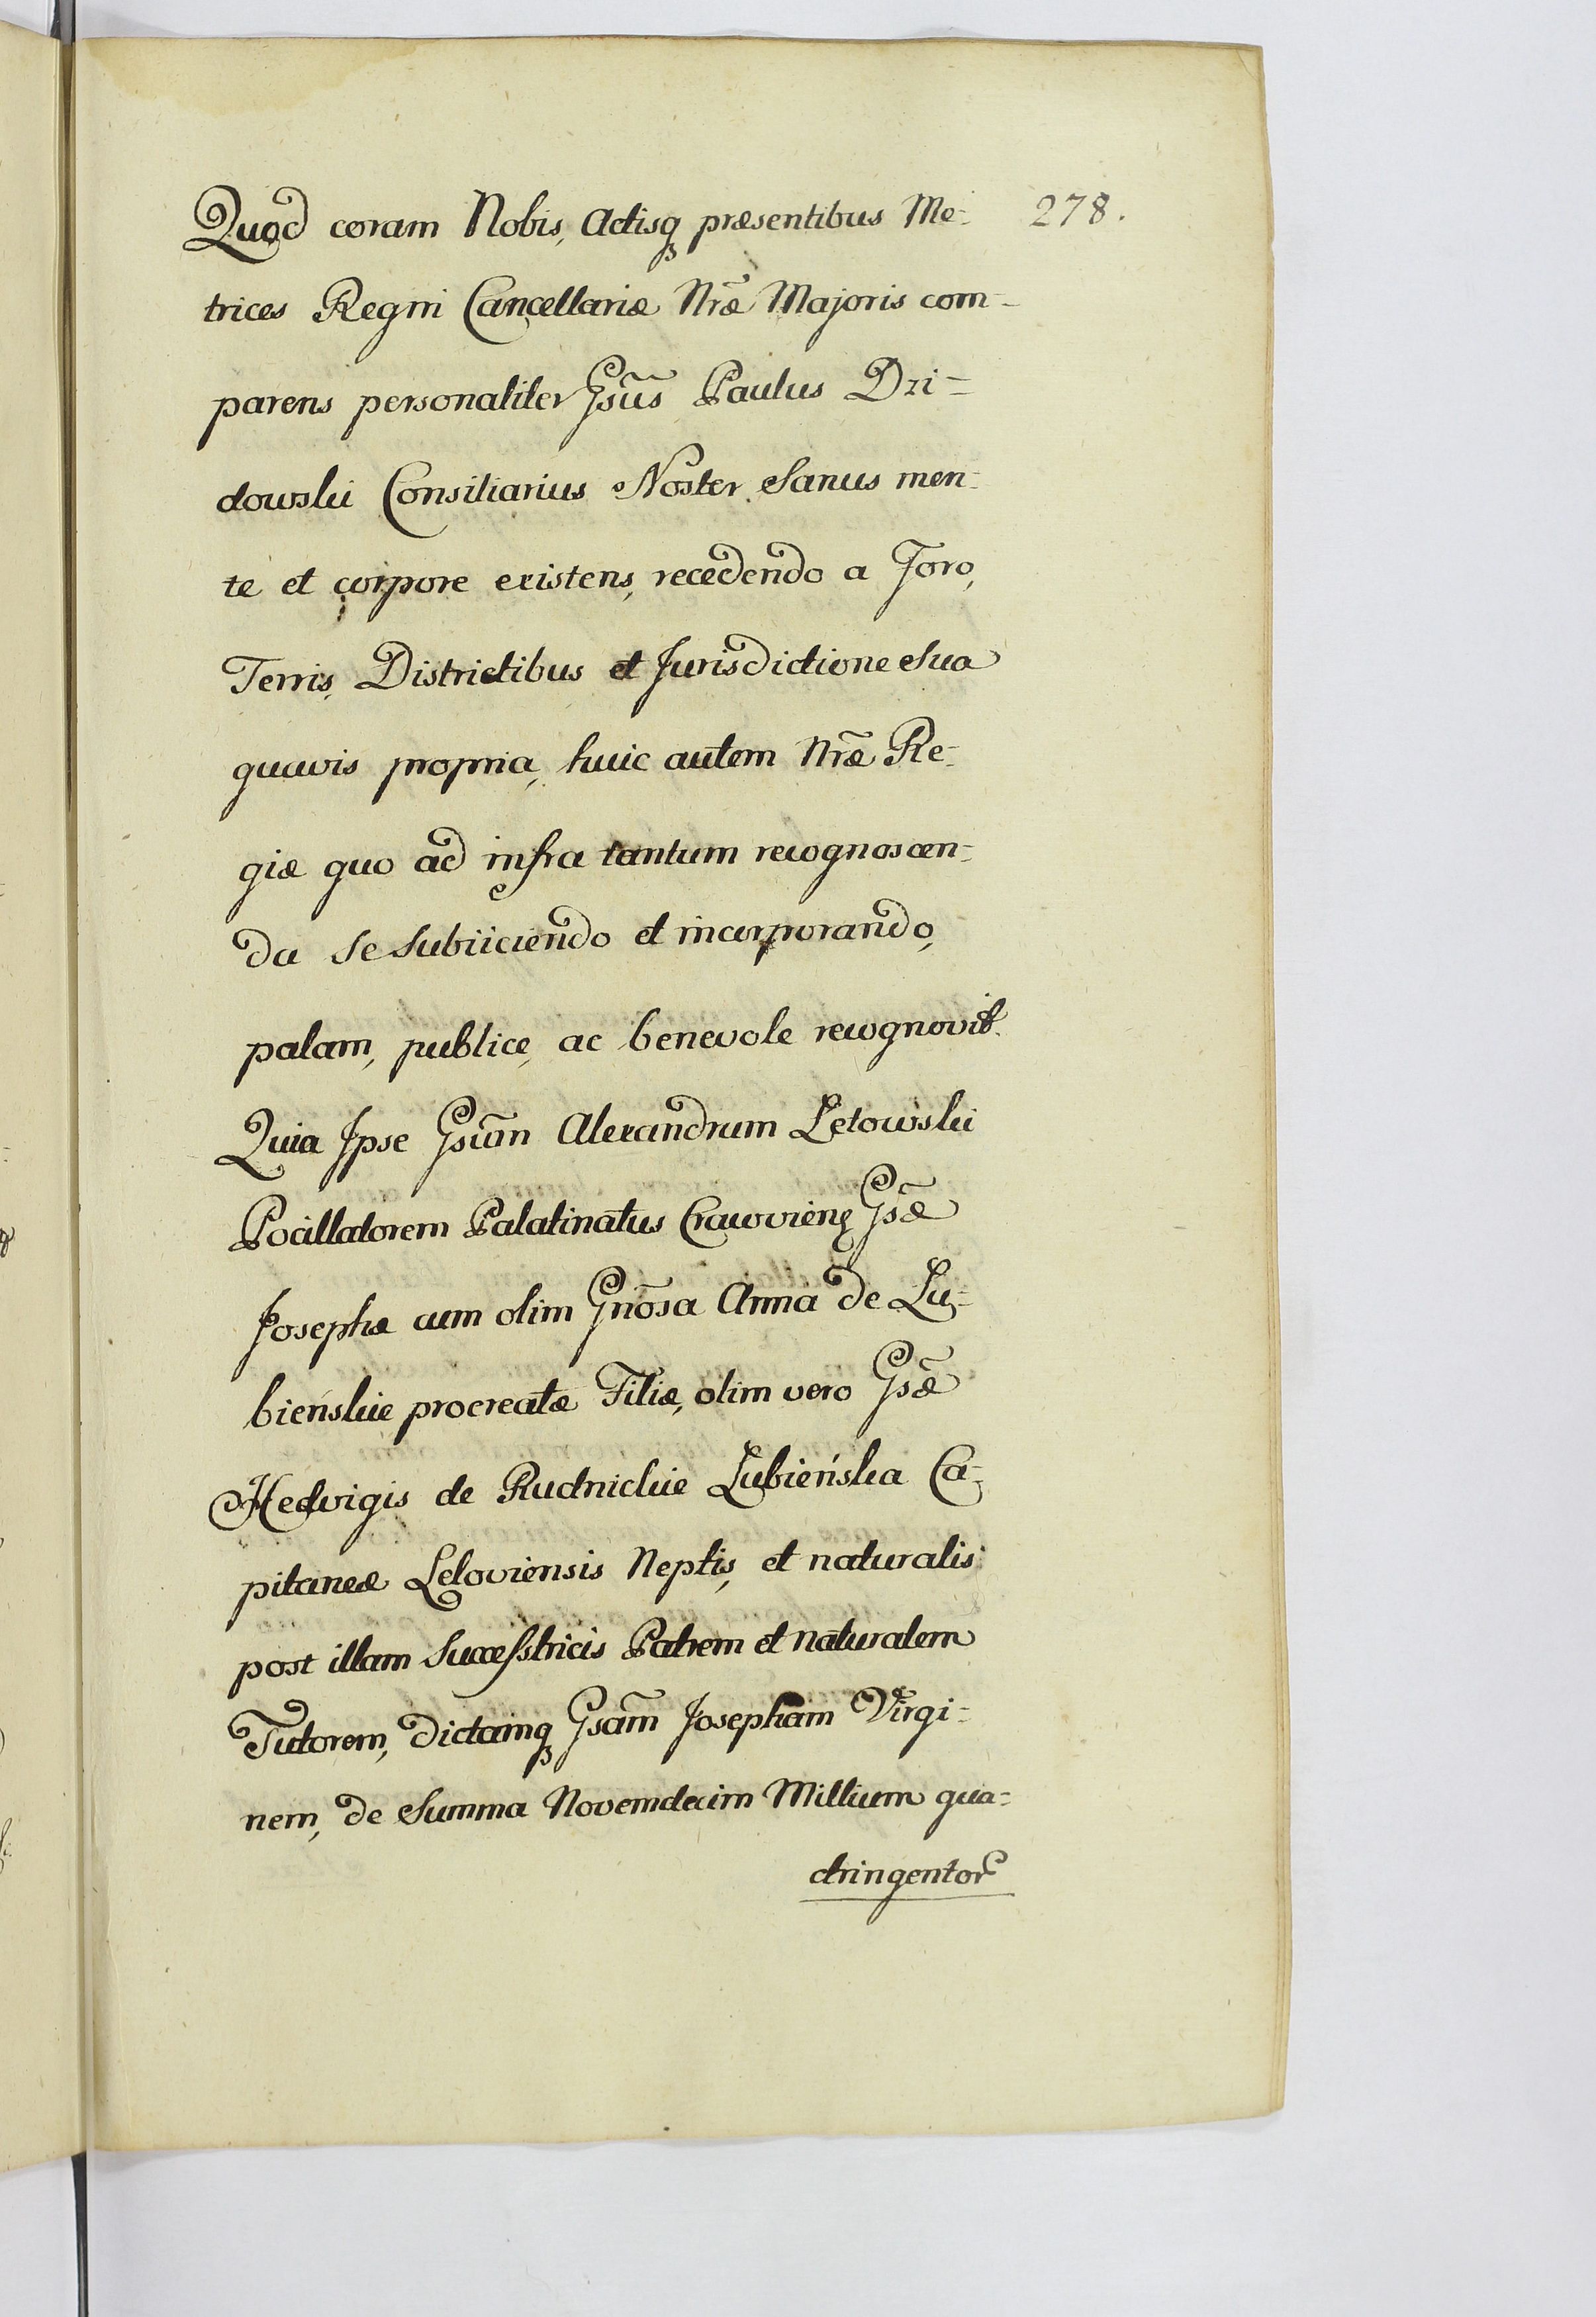 Quod coram Nobis, Actisq3 præsentibus Me- 278.
trices Regni Cancellariæ Nr̃æ Majoris com-
parens personaliter Gsũs Paulus Dzi-
dowski Consiliarius Noster Sanus men-
te et corpore existens, recedendo a Foro,
Terris, Districtibus et Jurisdictione sua
quavis propria, huic autem Nr̃æ Re-
giæ quo ad infra tantum recognoscen-
da se subiiciendo et incorporando,
palam, publice, ac benevole recognovit.
Quia Ipse Gsũm Alexandrum Letowski
Pocillatorem Palatinatus Cracovien̨ Gs̃æ
Josephæ cum olim Gnõsa Anna de Łu-
bieńskie procreatæ Filiæ, olim vero Gs̃æ
Hedvigis de Rudnickie Łubieńska Ca-
pitaneæ Leloviensis Neptis, et naturalis
post illam Successtricis Patrem et naturalem
Tutorem, dictamq3 Gsãm Josepham Virgi-
nem, de Summa Novemdecim Millium qua-
dringentor